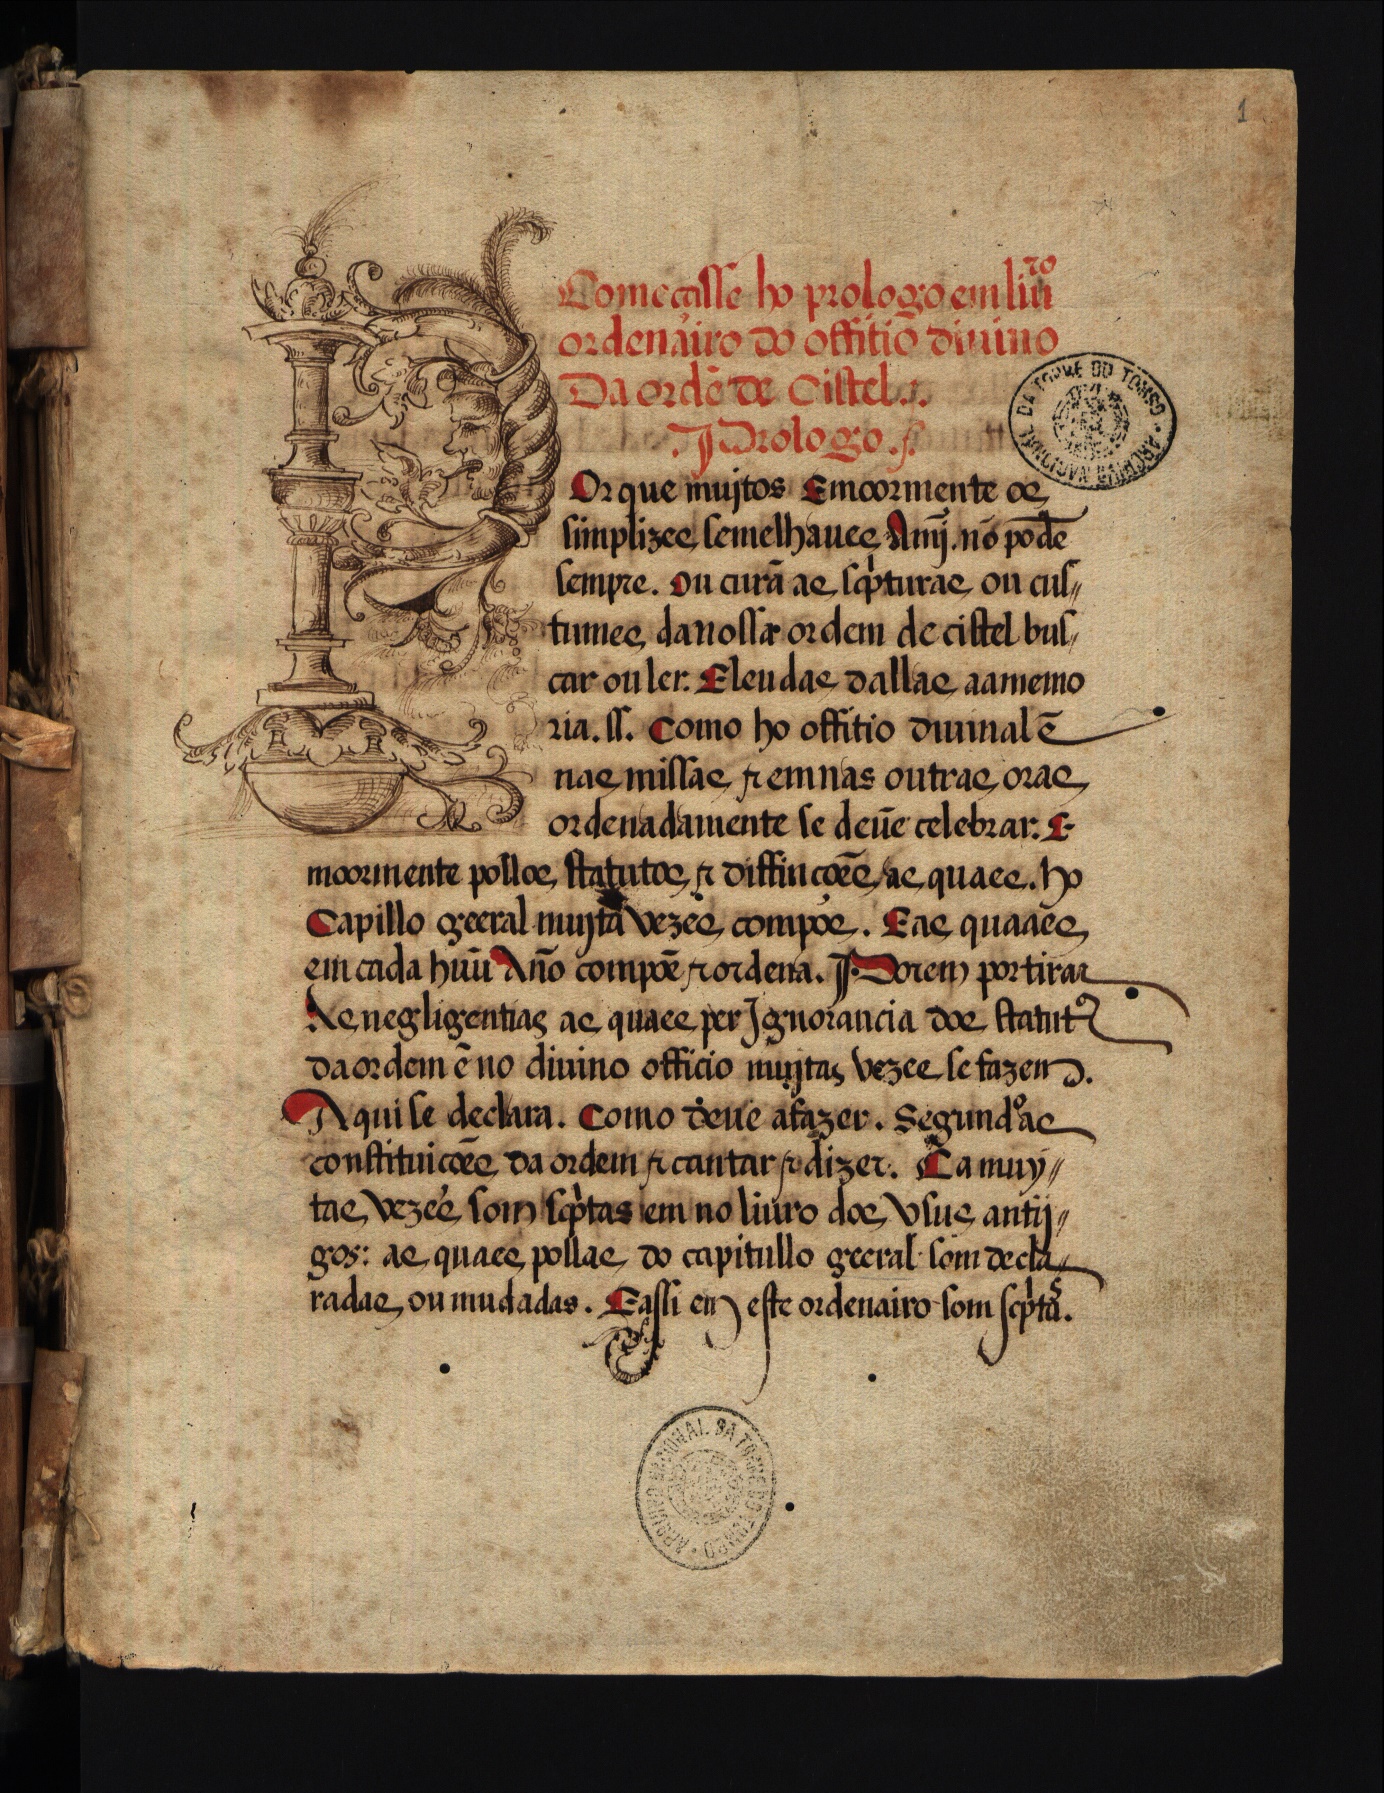 1
Começasse ho prologo em liuro
ordenairo do offitio diuino
Da ordẽ de Cistel.
Prologo.
POr que mujtos Emoormente os
simplizes semelhaues Amj. nõ podẽ
sempre. Ou curã as scpturas ou cus//
tumes da nossa ordem de cistel bus//
car ou ler. E leudas dallas aa memo
ria. ss. Como ho offitio diuinal ẽ
nas missas ⁊ em nas outras oras
ordenadamente se deuẽ celebrar: E
moormente pollos statutos ⁊ diffinçoẽs as quaes. ho
Capillo geeral mujta vezes compoẽ. E as quaaes
em cada huũ Año compoẽ ⁊ ordena. Porem por tirar
As negligentias as quaes per Jgnorancia dos statut9
da ordem ẽ no diuino officio mujtas vezes se fazem.
Aqui se declara. Como deue afazer. Segundo as
constituicoẽs da ordem ⁊ cantar ⁊ dizer. Ca muy//
tas vezes som scptas em no liuro dos Vsus antij//
gos: as quaes pollas do capitullo geeral som decla
radas ou mudadas. E assi em este ordenairo som scptas.
ARQUIVO NACIONAL DA TORRE DO TOMBO
ARQUIVO NACIONAL DA TORRE DO TOMBO